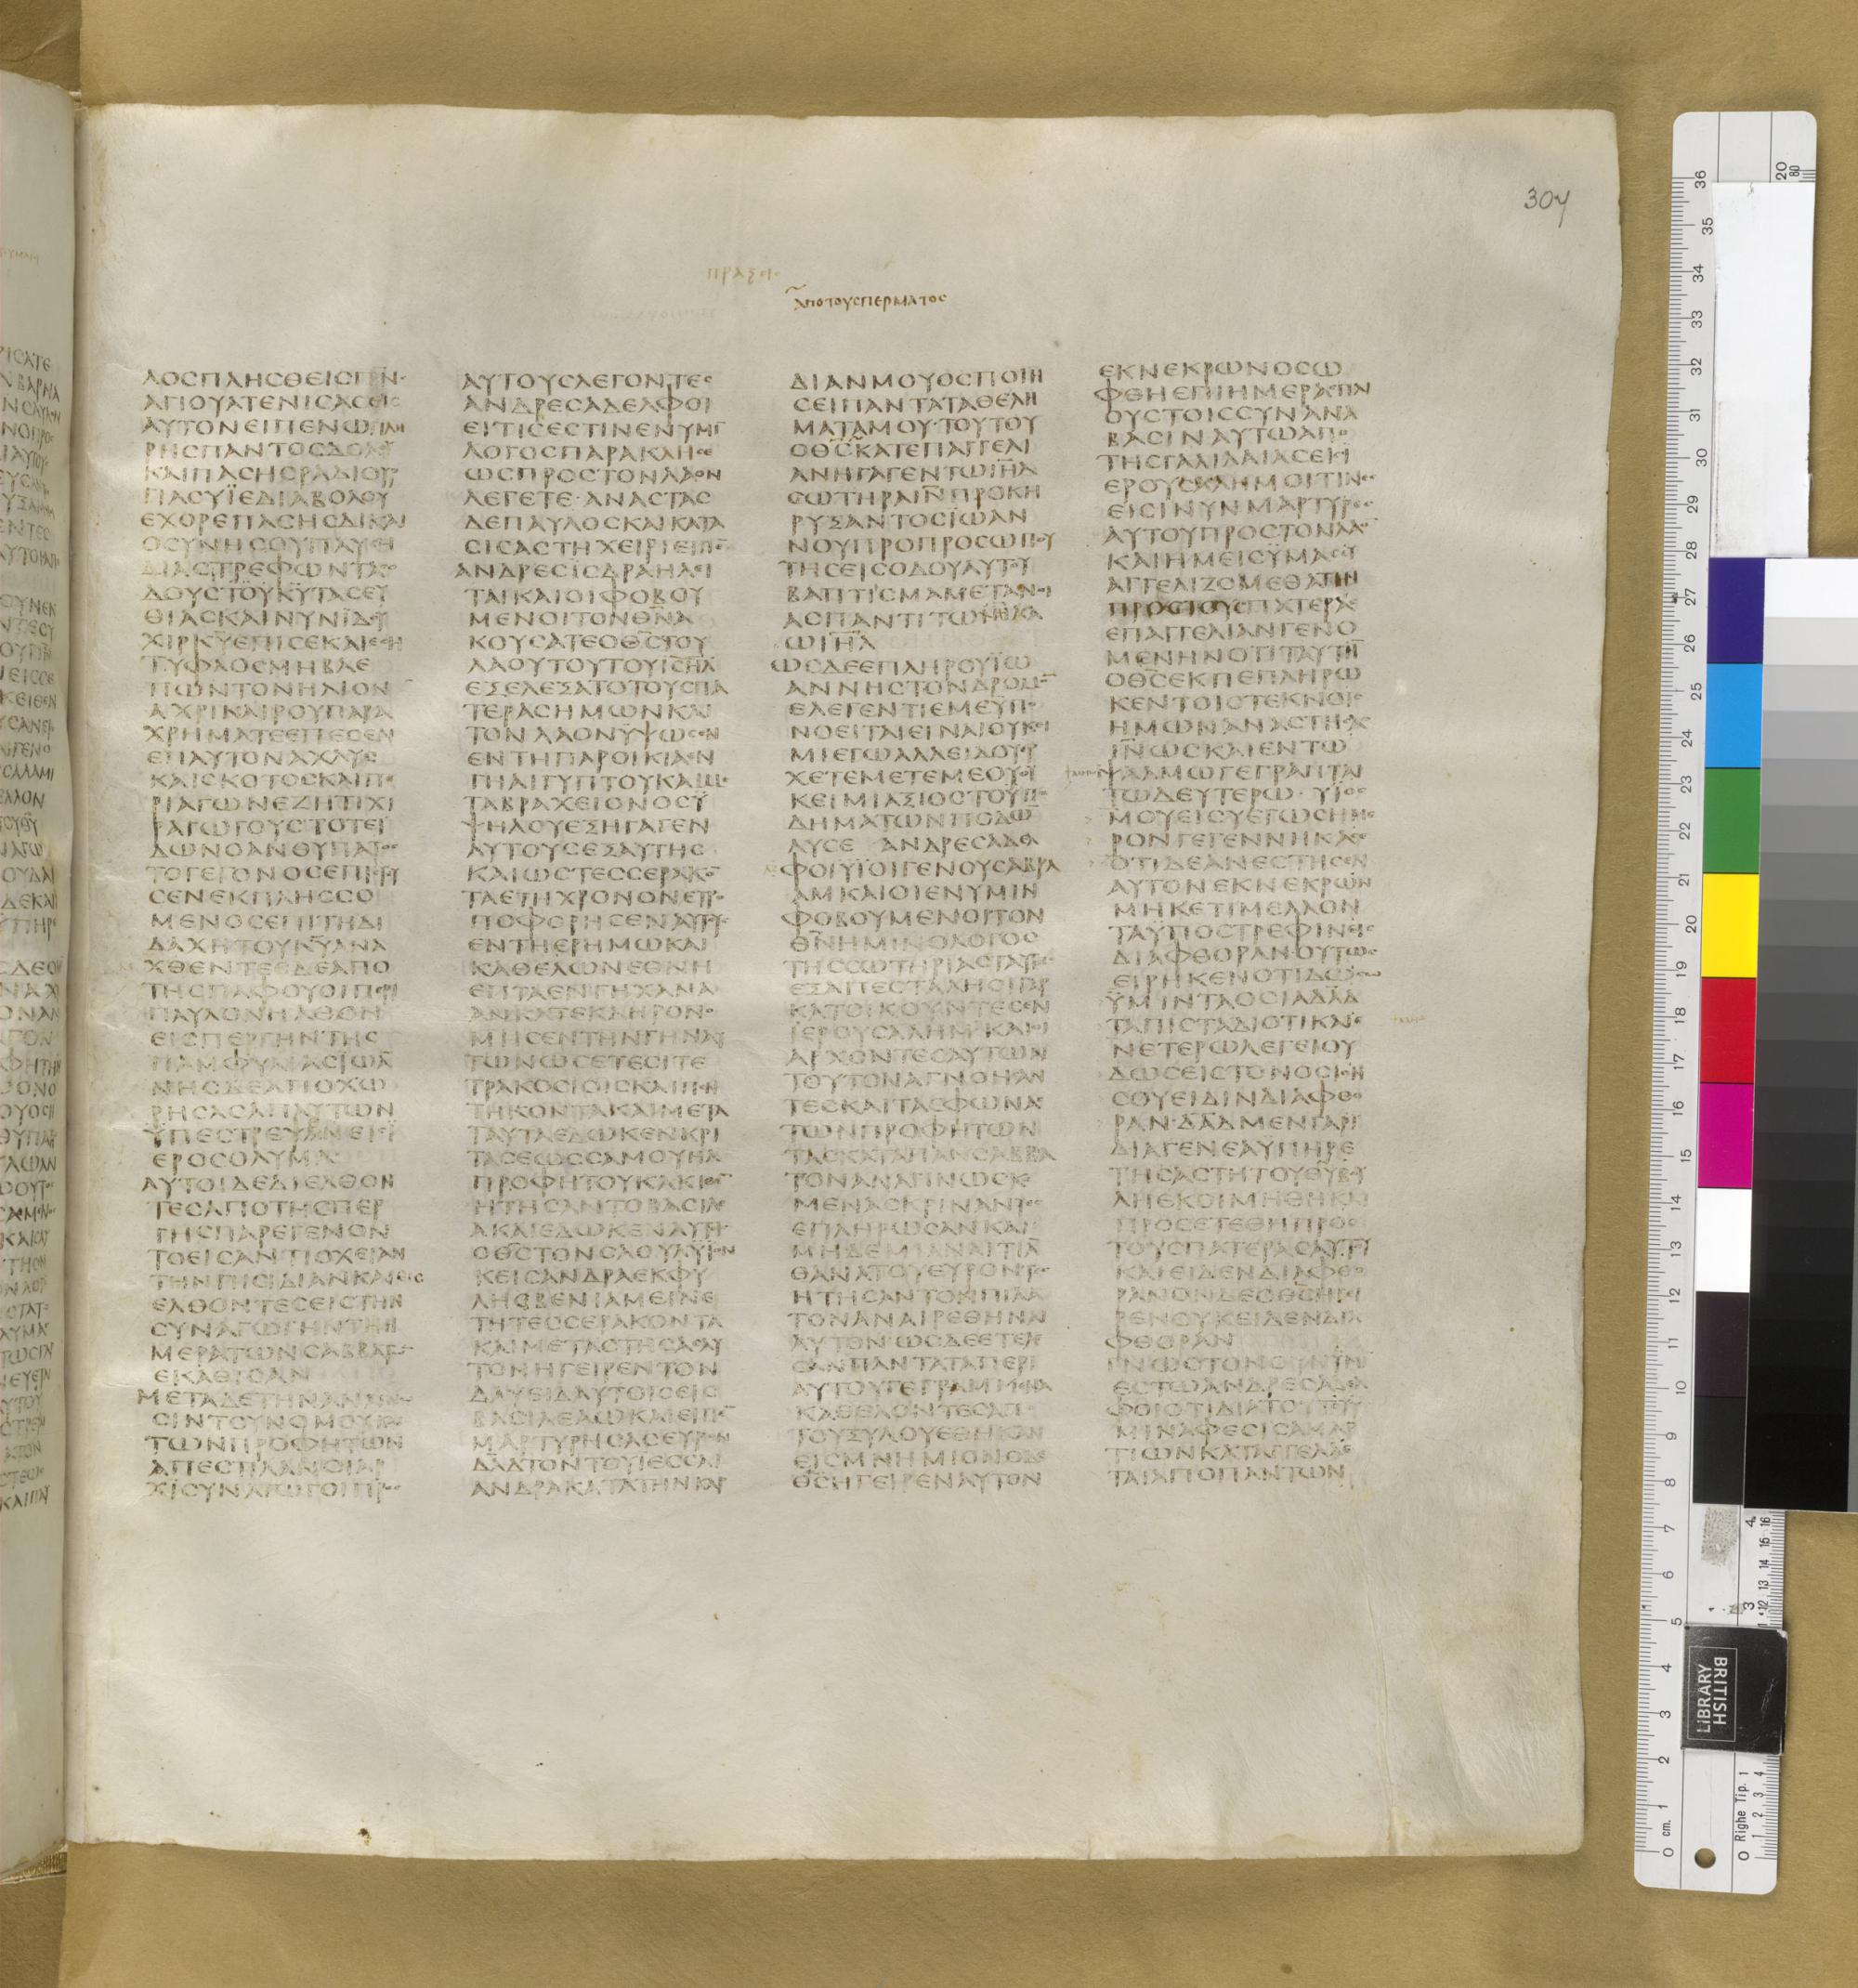 304
ΠΡΑΞΙϹ
ΑΠΟΤΟΥϹΠΕΡΜΑΤΟϹ
ΛΟϹΠΛΗϹΘΕΙϹΠΝϹ
ΑΓΙΟΥΑΤΕΝΙϹΑϹΕΙϹ
ΑΥΤΟΝΕΙΠΕΝΩΠΛΗ
ΡΗϹΠΑΝΤΟϹΔΟΛΟΥ
ΚΑΙΠΑϹΗϹΡΑΔΙΟΥΡ
ΓΙΑϹΥΪΕΔΙΑΒΟΛΟΥ
ΕΧΘΡΕΠΑϹΗϹΔΙΚΑΙ
ΟϹΥΝΗϹΟΥΠΑΥϹΗ
ΔΙΑϹΤΡΕΦΩΝΤΑϹΟ
ΔΟΥϹΤΟΥΚΥΤΑϹΕΥ
ΘΙΑϹΚΑΙΝΥΝΪΔΟΥ
ΧΙΡΚΥΕΠΙϹΕΚΑΙΕϹΗ
ΤΥΦΛΟϹΜΗΒΛΕ
ΠΩΝΤΟΝΗΛΙΟΝ
ΑΧΡΙΚΑΙΡΟΥΠΑΡΑ
ΧΡΗΜΑΤΕΕΠΕϹΕΝ
ΕΠΑΥΤΟΝΑΧΛΥϹ
ΚΑΙϹΚΟΤΟϹΚΑΙΠΕ
ΡΙΑΓΩΝΕΖΗΤΙΧΙ
ΡΑΓΩΓΟΥϹΤΟΤΕΪ
ΔΩΝΟΑΝΘΥΠΑΤΟϹ
ΤΟΓΕΓΟΝΟϹΕΠΙϹΤΕΥ
ϹΕΝΕΚΠΛΗϹϹΟ
ΜΕΝΟϹΕΠΙΤΗΔΙ
ΔΑΧΗΤΟΥΚΥΑΝΑ
ΧΘΕΝΤΕϹΔΕΑΠΟ
ΤΗϹΠΑΦΟΥΟΙΠΕΡΙ
ΠΑΥΛΟΝΗΛΘΟΝ
ΕΙϹΠΕΡΓΗΝΤΗϹ
ΠΑΜΦΥΛΙΑϹΪΩΑ
ΝΗϹΔΕΑΠΟΧΩ
ΡΗϹΑϹΑΠΑΥΤΩΝ
ΫΠΕϹΤΡΕΨΕΝΕΙϹΪ
ΕΡΟϹΟΛΥΜΑ
ΑΥΤΟΙΔΕΔΙΕΛΘΟΝ
ΤΕϹΑΠΟΤΗϹΠΕΡ
ΓΗϹΠΑΡΕΓΕΝΟΝ
ΤΟΕΙϹΑΝΤΙΟΧΕΙΑΝ
ΤΗΝΠΙϹΙΔΙΑΝΚΑΙΕΙϹ
ΕΛΘΟΝΤΕϹΕΙϹΤΗΝ
ϹΥΝΑΓΩΓΗΝΤΗΗ
ΜΕΡΑΤΩΝϹΑΒΒΑΤΩ
ΕΚΑΘΙϹΑΝ
ΜΕΤΑΔΕΤΗΝΑΝΑΓΝΩ
ϹΙΝΤΟΥΝΟΜΟΥΚΑΙ
ΤΩΝΠΡΟΦΗΤΩΝ
ΑΠΕϹΤΙΛΑΝΟΙΑΡ
ΧΙϹΥΝΑΓΩΓΟΙΠΡΟϹ
ΑΥΤΟΥϹΛΕΓΟΝΤΕϹ
ΑΝΔΡΕϹΑΔΕΛΦΟΙ
ΕΙΤΙϹΕϹΤΙΝΕΝΥΜΙ
ΛΟΓΟϹΠΑΡΑΚΛΗϹΕ
ΩϹΠΡΟϹΤΟΝΛΑΟΝ
ΛΕΓΕΤΕ·ΑΝΑϹΤΑϹ
ΔΕΠΑΥΛΟϹΚΑΙΚΑΤΑ
ϹΙϹΑϹΤΗΧΕΙΡΙΕΙΠΕ
ΑΝΔΡΕϹΙϹΔΡΑΗΛΙ
ΤΑΙΚΑΙΟΙΦΟΒΟΥ
ΜΕΝΟΙΤΟΝΘΝΑ
ΚΟΥϹΑΤΕΟΘϹΤΟΥ
ΛΑΟΥΤΟΥΤΟΥΙϹΗΛ
ΕΞΕΛΕΞΑΤΟΤΟΥϹΠΑ
ΤΕΡΑϹΗΜΩΝΚΑΙ
ΤΟΝΛΑΟΝΥΨΩϹΕΝ
ΕΝΤΗΠΑΡΟΙΚΙΑΕΝ
ΓΗΑΙΓΥΠΤΟΥΚΑΙΜΕ
ΤΑΒΡΑΧΕΙΟΝΟϹΫ
ΨΗΛΟΥΕΞΗΓΑΓΕΝ
ΑΥΤΟΥϹΕΞΑΥΤΗϹ
ΚΑΙΩϹΤΕϹϹΕΡΑΚΟ
ΤΑΕΤΗΧΡΟΝΟΝΕΤΡΟ
ΠΟΦΟΡΗϹΕΝΑΥΤΟΥϹ
ΕΝΤΗΕΡΗΜΩΚΑΙ
ΚΑΘΕΛΩΝΕΘΝΗ
ΕΠΤΑΕΝΓΗΧΑΝΑ
ΑΝΚΑΤΕΚΛΗΡΟΝΟ
ΜΗϹΕΝΤΗΝΓΗΝΑΥ
ΤΩΝΩϹΕΤΕϹΙΤΕ
ΤΡΑΚΟϹΙΟΙϹΚΑΙΠΕΝ
ΤΗΚΟΝΤΑΚΑΙΜΕΤΑ
ΤΑΥΤΑΕΔΩΚΕΝΚΡΙ
ΤΑϹΕΩϹϹΑΜΟΥΗΛ
ΠΡΟΦΗΤΟΥΚΑΚΙΘΕ
ΗΤΗϹΑΝΤΟΒΑϹΙΛΕ
ΑΚΑΙΕΔΩΚΕΝΑΥΤΟΙϹ
ΟΘϹΤΟΝϹΑΟΥΛΥΪΟΝ
ΚΕΙϹΑΝΔΡΑΕΚΦΥ
ΛΗϹΒΕΝΙΑΜΕΙΝΕ
ΤΗΤΕϹϹΕΡΑΚΟΝΤΑ
ΚΑΙΜΕΤΑϹΤΗϹΑϹΑΥ
ΤΟΝΗΓΕΙΡΕΝΤΟΝ
ΔΑΥΕΙΔΑΥΤΟΙϹΕΙϹ
ΒΑϹΙΛΕΑΩΚΑΙΕΙΠΕ
ΜΑΡΤΥΡΗϹΑϹΕΥΡΟΝ
ΔΑΔΤΟΝΤΟΥΙΕϹϹΑΙ
ΑΝΔΡΑΚΑΤΑΤΗΝΚΑΡ
ΔΙΑΝΜΟΥΟϹΠΟΙΗ
ϹΕΙΠΑΝΤΑΤΑΘΕΛΗ
ΜΑΤΑΜΟΥ·ΤΟΥΤΟΥ
ΟΘϹΚΑΤΕΠΑΓΓΕΛΙ
ΑΝΗΓΑΓΕΝΤΩΙΗΛ
ϹΩΤΗΡΑΙΝΠΡΟΚΗ
ΡΥΞΑΝΤΟϹΪΩΑΝ
ΝΟΥΠΡΟΠΡΟϹΩΠΟΥ
ΤΗϹΕΙϹΟΔΟΥΑΥΤΟΥ
ΒΑΠΤΙϹΜΑΜΕΤΑΝΟΙ
ΑϹΠΑΝΤΙΤΩΛΑ
ΩΙΗΛ
ΩϹΔΕΕΠΛΗΡΟΥΪΩ
ΑΝΝΗϹΤΟΝΔΡΟΜΟ
ΕΛΕΓΕΝΤΙΕΜΕΥΠΟ
ΝΟΕΙΤΑΙΕΙΝΑΙΟΥΚΕΙ
ΜΙΕΓΩΑΛΛΕΙΔΟΥΕΡ
ΧΕΤΕΜΕΤΕΜΕΟΥΟΥ
ΚΕΙΜΙΑΞΙΟϹΤΟΥΠΟ
ΔΗΜΑΤΩΝΠΟΔΩ
ΛΥϹΕ ΑΝΔΡΕϹΑΔΕΛ
ΦΟΙΥΪΟΙΓΕΝΟΥϹΑΒΡΑ
ΑΜΚΑΙΟΙΕΝΥΜΙΝ
ΦΟΒΟΥΜΕΝΟΙΤΟΝ
ΘΝΗΜΙΝΟΛΟΓΟϹ
ΤΗϹϹΩΤΗΡΙΑϹΤΑΥΤΗϹ
ΕΞΑΠΕϹΤΑΛΗΟΙΓΑΡ
ΚΑΤΟΙΚΟΥΝΤΕϹΕΝ
ΪΕΡΟΥϹΑΛΗΜΚΑΙΟΙ
ΑΡΧΟΝΤΕϹΑΥΤΩΝ
ΤΟΥΤΟΝΑΓΝΟΗϹΑΝ
ΤΕϹΚΑΙΤΑϹΦΩΝΑϹ
ΤΩΝΠΡΟΦΗΤΩΝ
ΤΑϹΚΑΤΑΠΑΝϹΑΒΒΑ
ΤΟΝΑΝΑΓΙΝΩϹΚΟ
ΜΕΝΑϹΚΡΙΝΑΝΤΕϹ
ΕΠΛΗΡΩϹΑΝΚΑΙ
ΜΗΔΕΜΙΑΝΑΙΤΙΑ
ΘΑΝΑΤΟΥΕΥΡΟΝΤΕϹ
ΗΤΗϹΑΝΤΟΝΠΙΛΑ
ΤΟΝΑΝΑΙΡΕΘΗΝΑΙ
ΑΥΤΟΝΩϹΔΕΕΤΕΛΕ
ϹΑΝΠΑΝΤΑΤΑΠΕΡΙ
ΑΥΤΟΥΓΕΓΡΑΜΜΕΝΑ
ΚΑΘΕΛΟΝΤΕϹΑΠΟ
ΤΟΥΞΥΛΟΥΕΘΗΚΑΝ
ΕΙϹΜΝΗΜΙΟΝΟΔΕ
ΘϹΗΓΕΙΡΕΝΑΥΤΟΝ
ΕΚΝΕΚΡΩΝΟϹΩ
ΦΘΗΕΠΙΗΜΕΡΑϹΠΛΙ
ΟΥϹΤΟΙϹϹΥΝΑΝΑ
ΒΑϹΙΝΑΥΤΩΑΠΟ
ΤΗϹΓΑΛΙΛΑΙΑϹΕΙϹΪ
ΕΡΟΥϹΑΛΗΜΟΙΤΙΝΕϹ
ΕΙϹΙΝΥΝΜΑΡΤΥΡΕϹ
ΑΥΤΟΥΠΡΟϹΤΟΝΛΑΟ
ΚΑΙΗΜΕΙϹΫΜΑϹΕΥ
ΑΓΓΕΛΙΖΟΜΕΘΑΤΗΝ
ΠΡΟϹΤΟΥϹΠΑΤΕΡΑϹ
ΕΠΑΓΓΕΛΙΑΝΓΕΝΟ
ΜΕΝΗΝΟΤΙΤΑΥΤΗ
ΟΘϹΕΚΠΕΠΛΗΡΩ
ΚΕΝΤΟΙϹΤΕΚΝΟΙϹ
ΗΜΩΝΑΝΑϹΤΗϹΑϹ
ΙΝΩϹΚΑΙΕΝΤΩ
ΨΑΛΜΩΓΕΓΡΑΠΤΑΙ
ΤΩΔΕΥΤΕΡΩ·ΥΪΟϹ
ΜΟΥΕΙϹΥΕΓΩϹΗΜΕ
ΡΟΝΓΕΓΕΝΝΗΚΑϹΕ
ΟΤΙΔΕΑΝΕϹΤΗϹΕΝ
ΑΥΤΟΝΕΚΝΕΚΡΩΝ
ΜΗΚΕΤΙΜΕΛΛΟΝ
ΤΑΫΠΟϹΤΡΕΦΙΝΕΙϹ
ΔΙΑΦΘΟΡΑΝΟΥΤΩϹ
ΕΙΡΗΚΕΝΟΤΙΔΩϹΩ
ΫΜΙΝΤΑΟϹΙΑΔΑΔ
ΤΑΠΙϹΤΑΔΙΟΤΙΚΑΙΕ
ΝΕΤΕΡΩΛΕΓΕΙΟΥ
ΔΩϹΕΙϹΤΟΝΟϹΙΟΝ
ϹΟΥΕΙΔΙΝΔΙΑΦΘΟ
ΡΑΝ·ΔΑΔΜΕΝΓΑΡΪ
ΔΙΑΓΕΝΕΑΫΠΗΡΕ
ΤΗϹΑϹΤΗΤΟΥΘΥΒΟΥ
ΛΗΕΚΟΙΜΗΘΗΚΑΙ
ΠΡΟϹΕΤΕΘΗΠΡΟϹ
ΤΟΥϹΠΑΤΕΡΑϹΑΥΤΟΥ
ΚΑΙΕΙΔΕΝΔΙΑΦΘΟ
ΡΑΝΟΝΔΕΟΘϹΗΓΙ
ΡΕΝΟΥΚΕΙΔΕΝΔΙΑ
ΦΘΟΡΑΝ
ΓΝΩϹΤΟΝΟΥΝΫΜΙ
ΕϹΤΩΑΝΔΡΕϹΑΔΕΛ
ΦΟΙΟΤΙΔΙΑΤΟΥΤΟΥ
ΜΙΝΑΦΕϹΙϹΑΜΑΡ
ΤΙΩΝΚΑΤΑΓΓΕΛΛΕ
ΤΑΙΑΠΟΠΑΝΤΩΝ